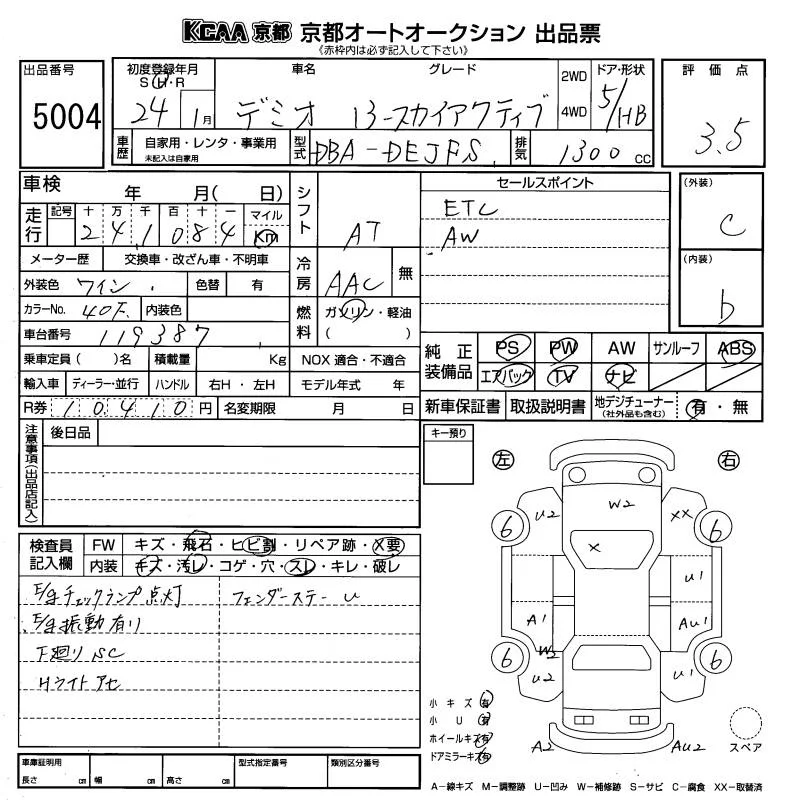 KCAA 京都 京都オートオークション 出品票
《赤枠内は必ず記入して下さい》
出品番号
5004
初度登録年月
S・H・R
24 1月
車名 グレード
デミオ 13-スカイアクティブ
2WD
4WD
ドア・形状
5/HB
評価点
3.5
車歴 自家用・レンタ・事業用
未記入は自家用
型式 DBA-DEJFS
排気 1300 cc
車検 年 月( 日)
走行 記号 十 万 千 百 十 一 マイル
2 4,1 0 8 4 Km
メーター歴 交換車・改ざん車・不明車
外装色 ワイン 色替 有
カラーNo. 40F 内装色
車台番号 119387
乗車定員( )名 積載量 Kg
輸入車 ディーラー・並行 ハンドル 右H・左H
R券 10410円 名変期限 月 日
シフト AT
冷房 AAC 無
燃料 ガソリン・軽油
( )
NOX 適合・不適合
モデル年式 年
セールスポイント
ETC
AW
(外装)
C
(内装)
b
純正装備品 PS PW AW サンルーフ ABS
エアバック TV ナビ
新車保証書 取扱説明書 地デジチューナー
(社外品も含む) 有・無
注意事項(出品店記入)
後日品
キー預り
検査員記入欄
FW キズ・飛石・ヒビ割・リペア跡・X要
内装 キズ・汚レ・コゲ・穴・スレ・キレ・破レ
E/gチェックランプ点灯
E/g振動有り
下廻りSC
Hライトアセ
フェンダーステー U
左 右
W2
U2 XX
6 6
X
U1
A1 AU1
W2
6 6
U2 U1
小キズ 有
小U 有
ホイールキズ 有
ドアミラーキズ 有
A2 AU2
スペア
車庫証明用
長さ cm 幅 cm 高さ cm
型式指定番号 類別区分番号
A-線キズ M-調整跡 U-凹み W-補修跡 S-サビ C-腐食 XX-取替済